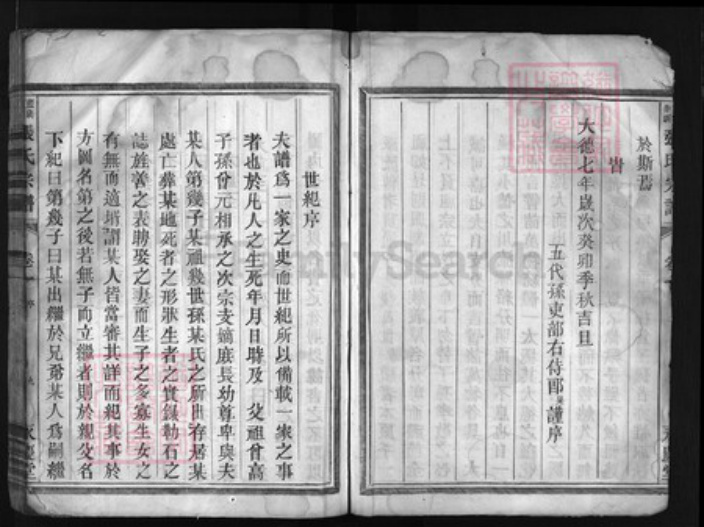 於斯焉
旹
大德七年歲次癸卯季秋吉旦
五代孫吏部右侍郎 謹序
世紀序
夫譜爲一家之史而世紀所以備載一家之事
者也於凡人之生死年月日時及 父祖曾高
子孫曾元相承之次宗支嫡庶長幼尊卑與夫
某人第幾子某祖幾世孫某氏之所出存居某
處亡葬某地死者之形狀生者之實錄勒石之
誌旌善之表聘娶之妻而生子之多寡生女之
有無而適壻謂某人皆當審其詳而紀其事於
方圖名第之後若無子而立繼者則於親父名
下紀曰第幾子曰某出繼於兄弟某人爲嗣繼
張氏宗譜
序
永慶堂
FamilySearch